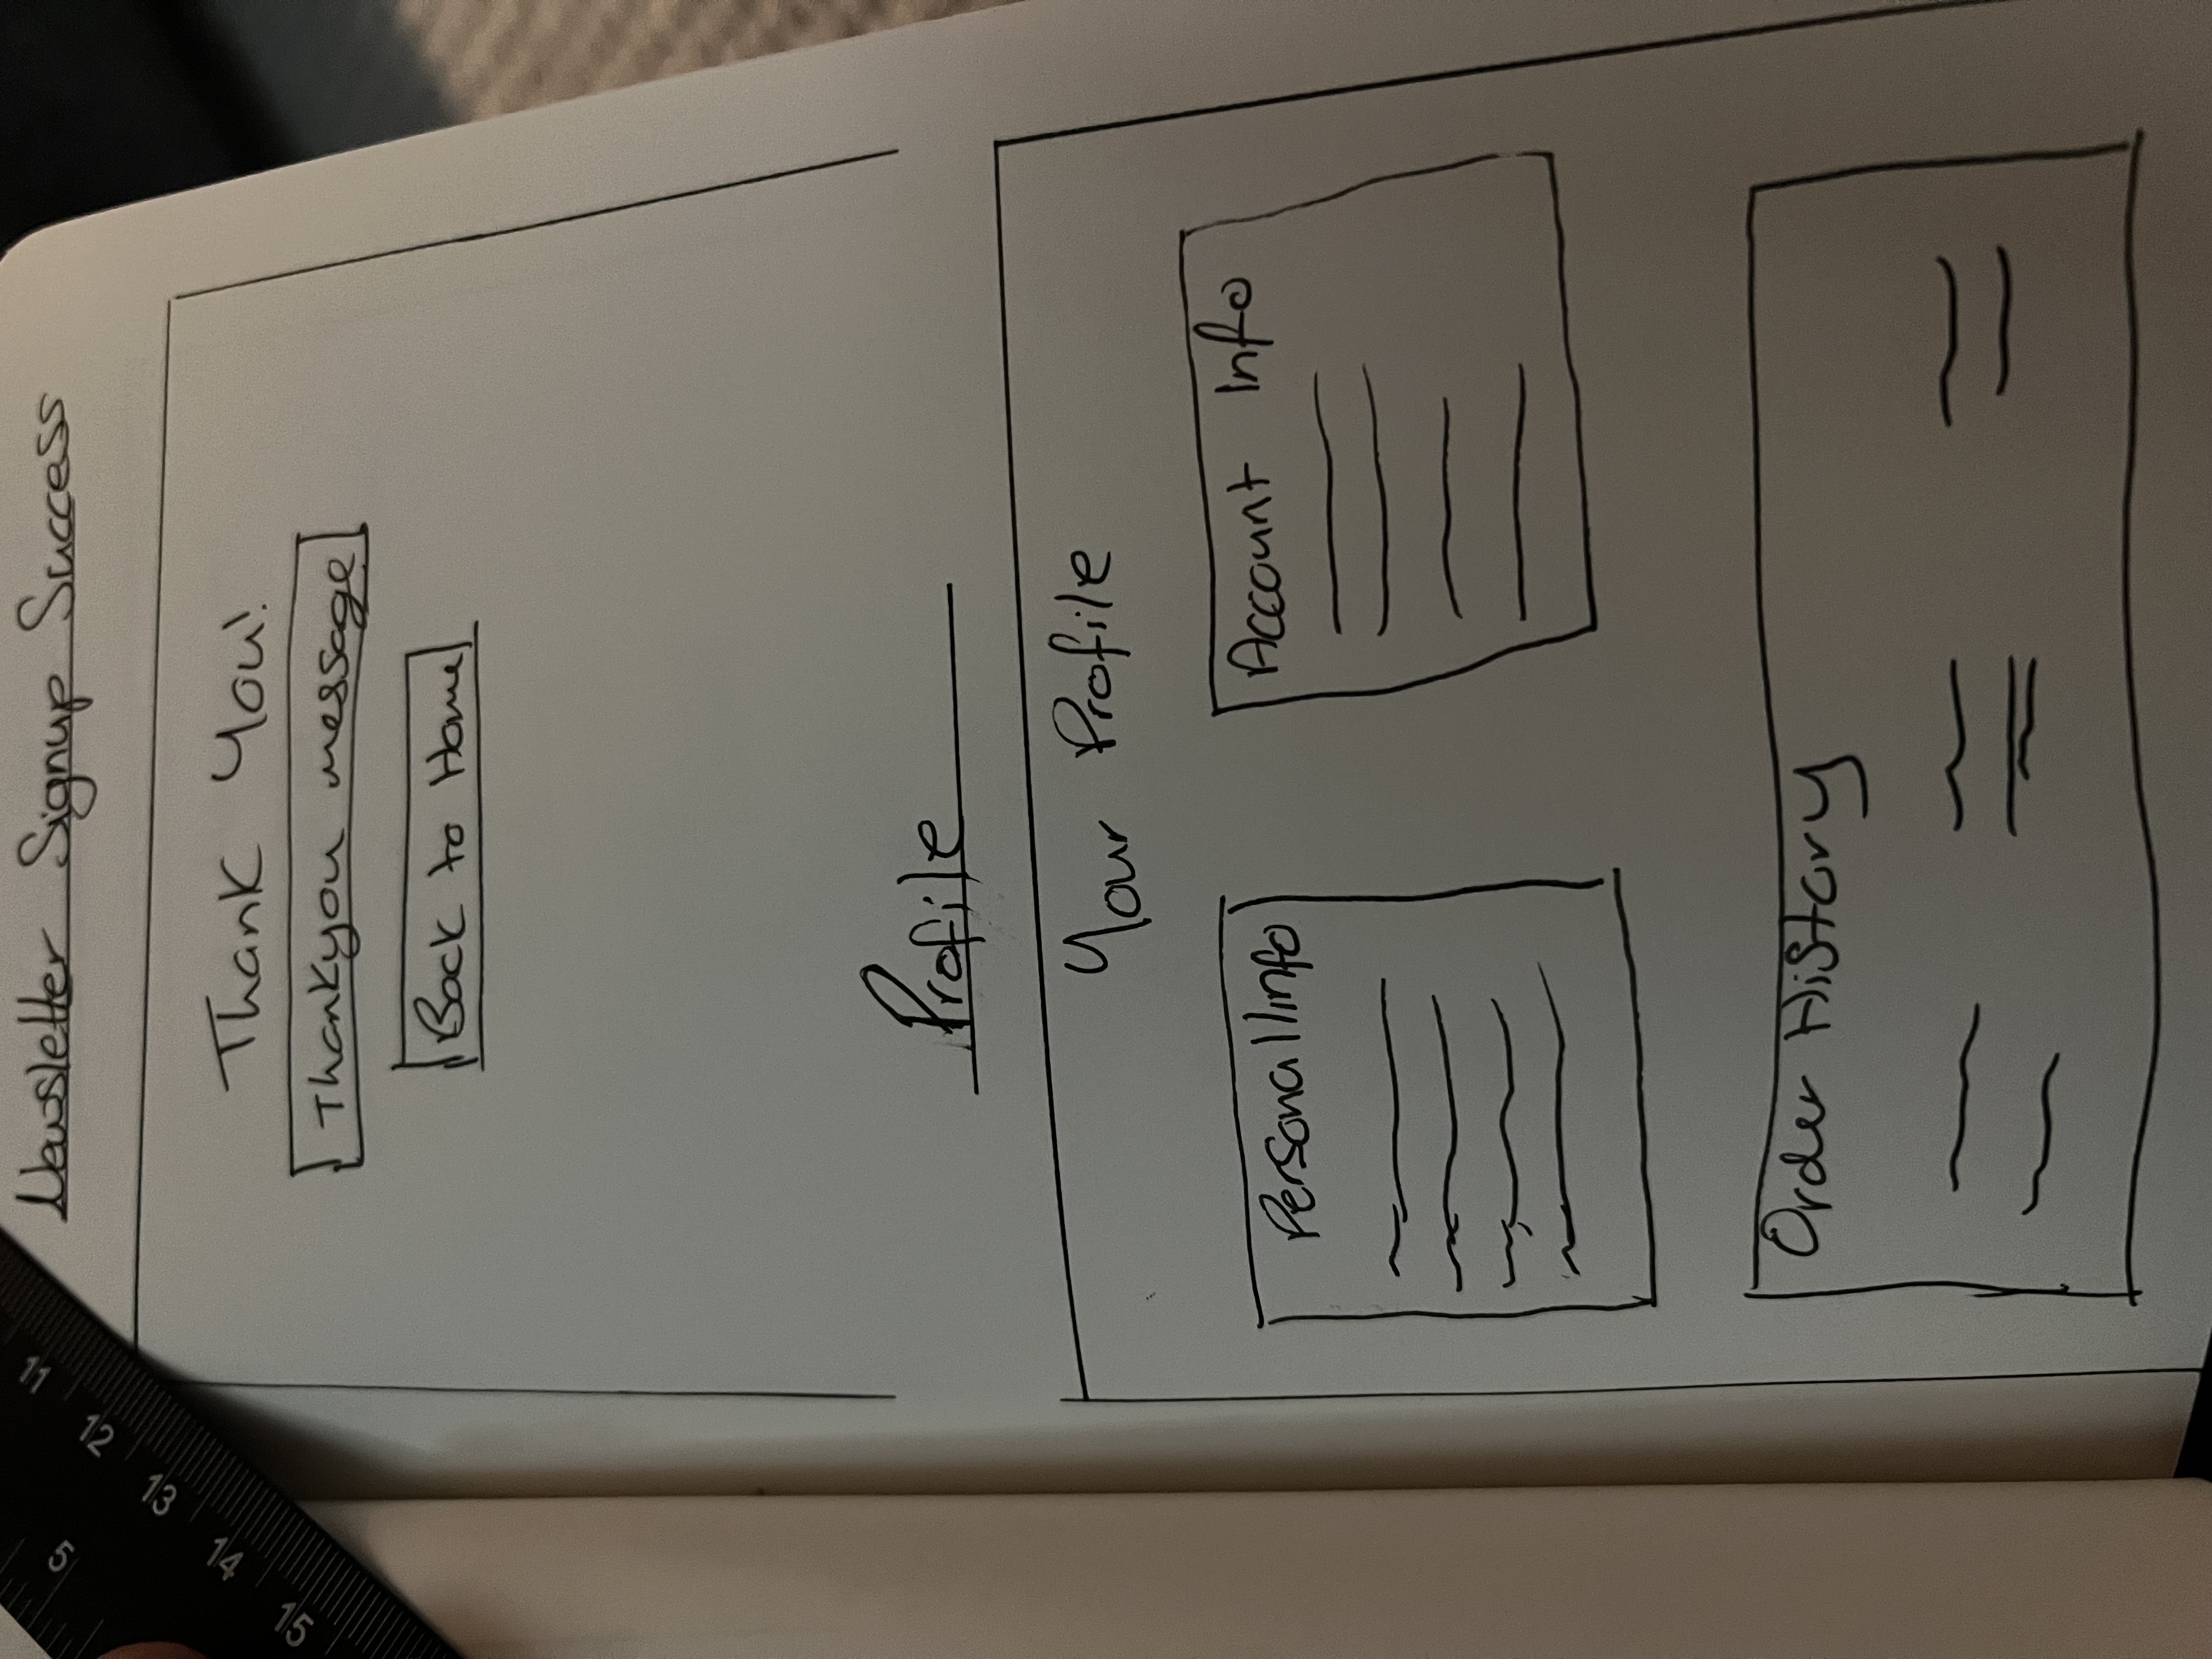 Newsletter Signup Success
Thank You!
Thankyou message
Back to Home
Profile
Your Profile
Personal Info
Account Info
Order History
11 12 13 14 15
5